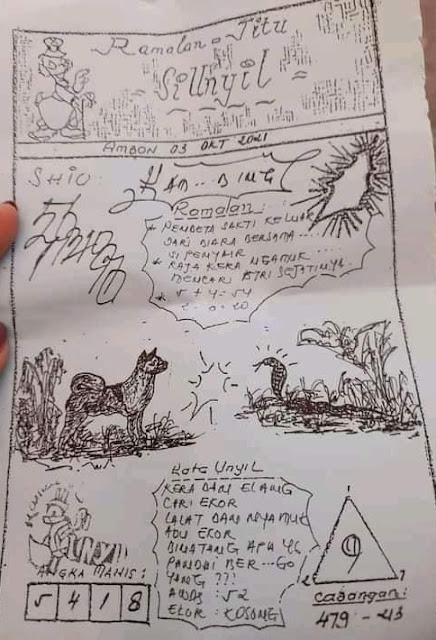 Ramalan = Jitu
SiUnyil
AMBON 03 OKT 2021
SHIO:
Ramalan:
* PENDETA SAKTI KELUAR
DARI DIARA BERSAMA.....
SI PENYAIR
* RAJA KERA NGAMUK
MENCARI ISTRI SEJATINYA.
* 5 + 4 = 54
2 - 0 = 20
Kata Unyil
KERA DAN ELANG
CARI EKOR
LALAT DAN NYAMUK
ADU EKOR
BINATANG APA YG
PANDAI BER...GO
YANG ???
AWAS : 52
EKOR : KOSONG
9
2 7
UNYIL
ANGKA MANIS:
5 4 1 8
Cabangan:
479 - 213